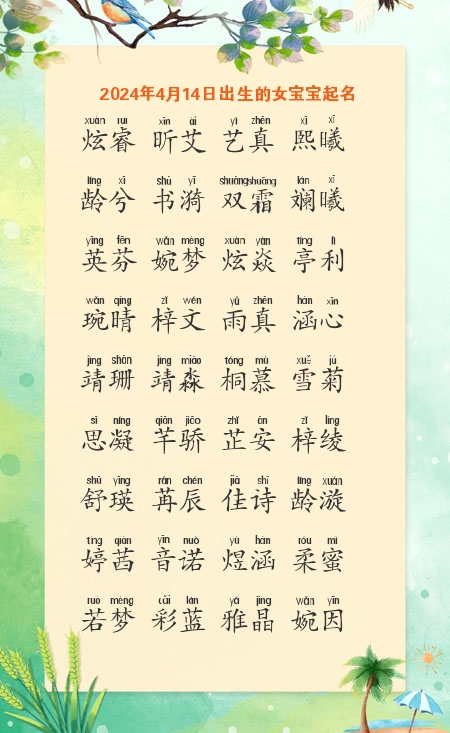 2024年4月14日出生的女宝宝起名
xuàn ruì xīn ài yì zhēn xī xī
炫睿 昕艾 艺真 熙曦
líng xī shū yī shuāngshuāng lán xī
龄兮 书漪 双霜 斓曦
yīng fēn wǎn mèng xuàn yàn tíng lì
英芬 婉梦 炫焱 亭利
wǎn qíng zǐ wén yǔ zhēn hán xīn
琬晴 梓文 雨真 涵心
jìng shān jìng miǎo tóng mù xuě jú
靖珊 靖淼 桐慕 雪菊
sī níng qiān jiāo zhǐ ān zǐ líng
思凝 芊骄 芷安 梓绫
shū yīng rǎn chén jiā shī líng xuán
舒瑛 苒辰 佳诗 龄漩
tíng qiàn yīn nuò yù hán róu mì
婷茜 音诺 煜涵 柔蜜
ruò mèng cǎi lán yǎ jīng wǎn yīn
若梦 彩蓝 雅晶 婉因